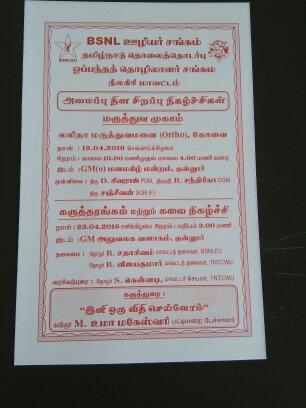 BSNL ஊழியர் சங்கம்
தமிழ்நாடு தொலைத்தொடர்பு
ஒப்பந்தத் தொழிலாளர் சங்கம்
நீலகிரி மாவட்டம்
BSNLEU
அமைப்பு தின சிறப்பு நிகழ்ச்சிகள்
மருத்துவ முகாம்
லலிதா மருத்துவமனை (Ortho), கோவை
நாள் : 19.04.2016 செவ்வாய்கிழமை
நேரம் : காலை 10.00 மணிமுதல் மாலை 4.00 மணி வரை
இடம் : GM(o) மனமகிழ் மன்றம், குன்னூர்
முன்னிலை : திரு D. சிவராஜ் PGM, திருமதி R. சந்திரிகா DGM
திரு சஞ்சீவன் DGM (F)
கருத்தரங்கம் மற்றும் கலை நிகழ்ச்சி
நாள் : 23.04.2016 சனிக்கிழமை நேரம் : மதியம் 2.00 மணி
இடம் : GM அலுவலக வளாகம், குன்னூர்
தலைமை : தோழர் R. சதாசிவம் மாவட்டத் தலைவர், BSNLEU
தோழர் B. விஜயகுமார் மாவட்டத் தலைவர், TNTCWU
வரவேற்புரை : தோழர் S. கென்னடி, மாவட்டச் செயலர், TNTCWU
கருத்துரை :
"இனி ஒரு விதி செய்வோம்"
கவிஞர் M. உமா மகேஸ்வரி பட்டிமன்ற பேச்சாளர்